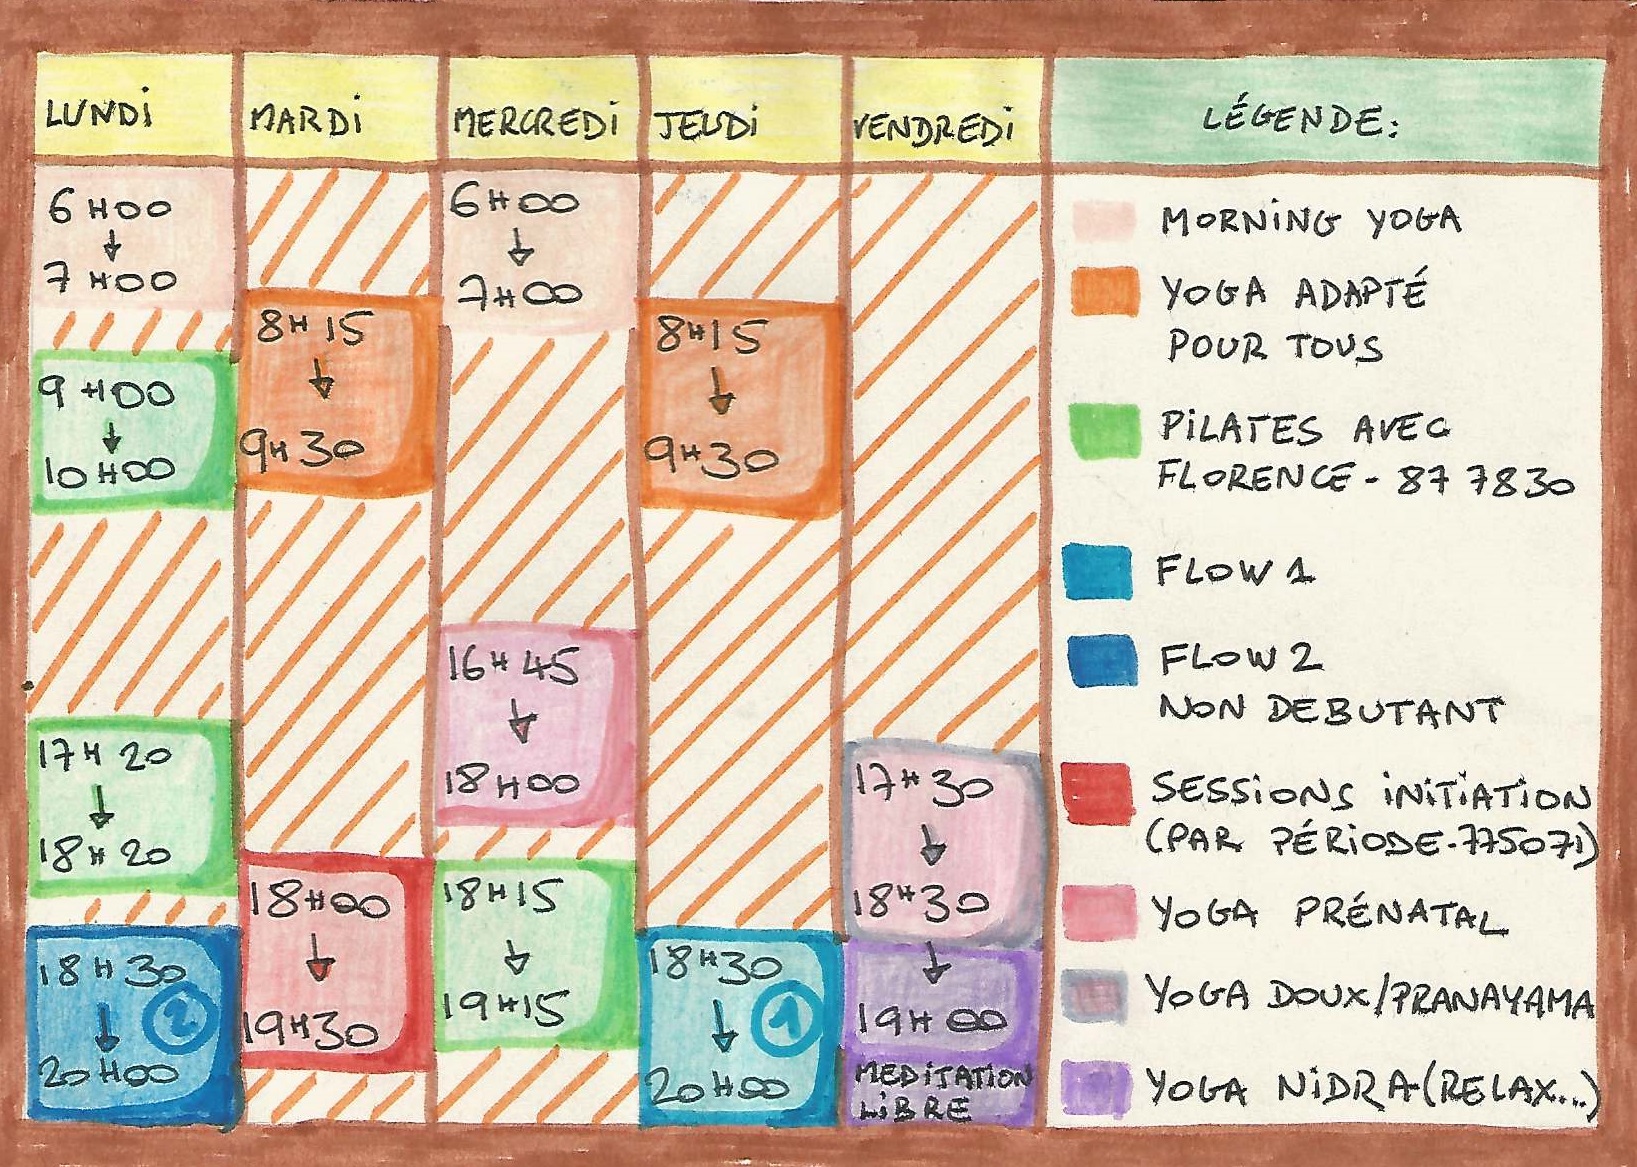 LUNDi
6H00
7H00
9H00
10H00
17H20
18H20
18H30
2
20H00
MARDi
8H15
9H30
18H00
19H30
MERCREDi
6H00
7H00
16H45
18H00
18H15
19H15
JEUDi
8H15
9H30
18H30
1
20H00
VENDREDi
17H30
18H30
19H00
MEDiTATION
LiBRE
LÉGENDE:
MORNiNG YOGA
YOGA ADAPTÉ
POUR TOUS
PiLATES AVEC
FLORENCE - 87 78 30
FLOW 1
FLOW 2
NON DEBUTANT
SESSiONS iNiTiATiON
(PAR PÉRiODE-775071)
YOGA PRÉNATAL
YOGA DOUX/PRANAYAMA
YOGA NiDRA-(RELAX...)